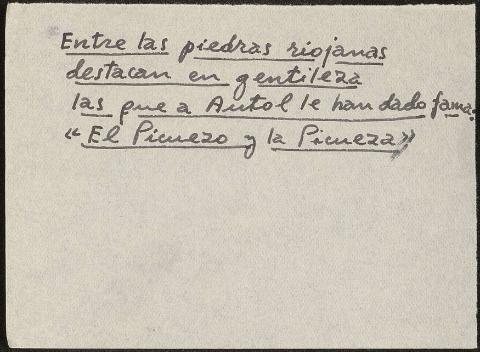 Entre las piedras riojanas
destacan en gentileza
las que a Autol le han dado fama:
"El Picuezo y la Picueza"